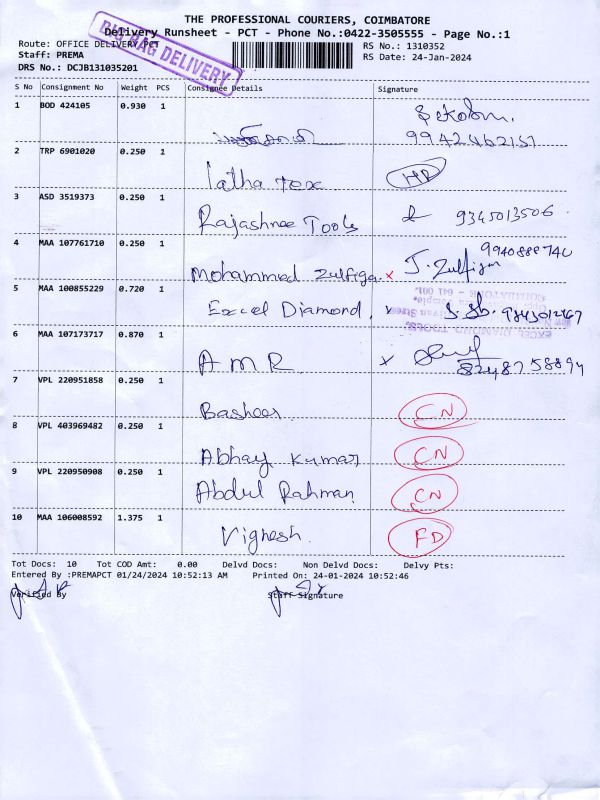 THE PROFESSIONAL COURIERS, COIMBATORE
Delivery Runsheet - PCT - Phone No.:0422-3505555 - Page No.:1
Route: OFFICE DELIVERY PCT
RS No.: 1310352
Staff: PREMA
RS Date: 24-Jan-2024
DRS No.: DCJB131035201
BIG BAG DELIVERY
S No Consignment No Weight PCS Consignee Details Signature
1 BOD 424105 0.930 1
9942462151
2 TRP 6901020 0.250 1
latha Tex HR
3 ASD 3519373 0.250 1
Rajashree Tools 9345013506
4 MAA 107761710 0.250 1
9940889740
Mohammed Zulfiga. x J. Zulfiga
5 MAA 100855229 0.720 1
Excel Diamond. x 9843012167
EXCEL DIAMOND TOOLS,
6 MAA 107173717 0.870 1
A M R x
8248758894
7 VPL 220951858 0.250 1
Basheer CN
8 VPL 403969482 0.250 1
Abhay Kumar CN
9 VPL 220950908 0.250 1
Abdul Rahman CN
10 MAA 106008592 1.375 1
Vignesh. FD
Tot Docs: 10 Tot COD Amt: 0.00 Delvd Docs: Non Delvd Docs: Delvy Pts:
Entered By :PREMAPCT 01/24/2024 10:52:13 AM Printed On: 24-01-2024 10:52:46
Verified By Staff Signature